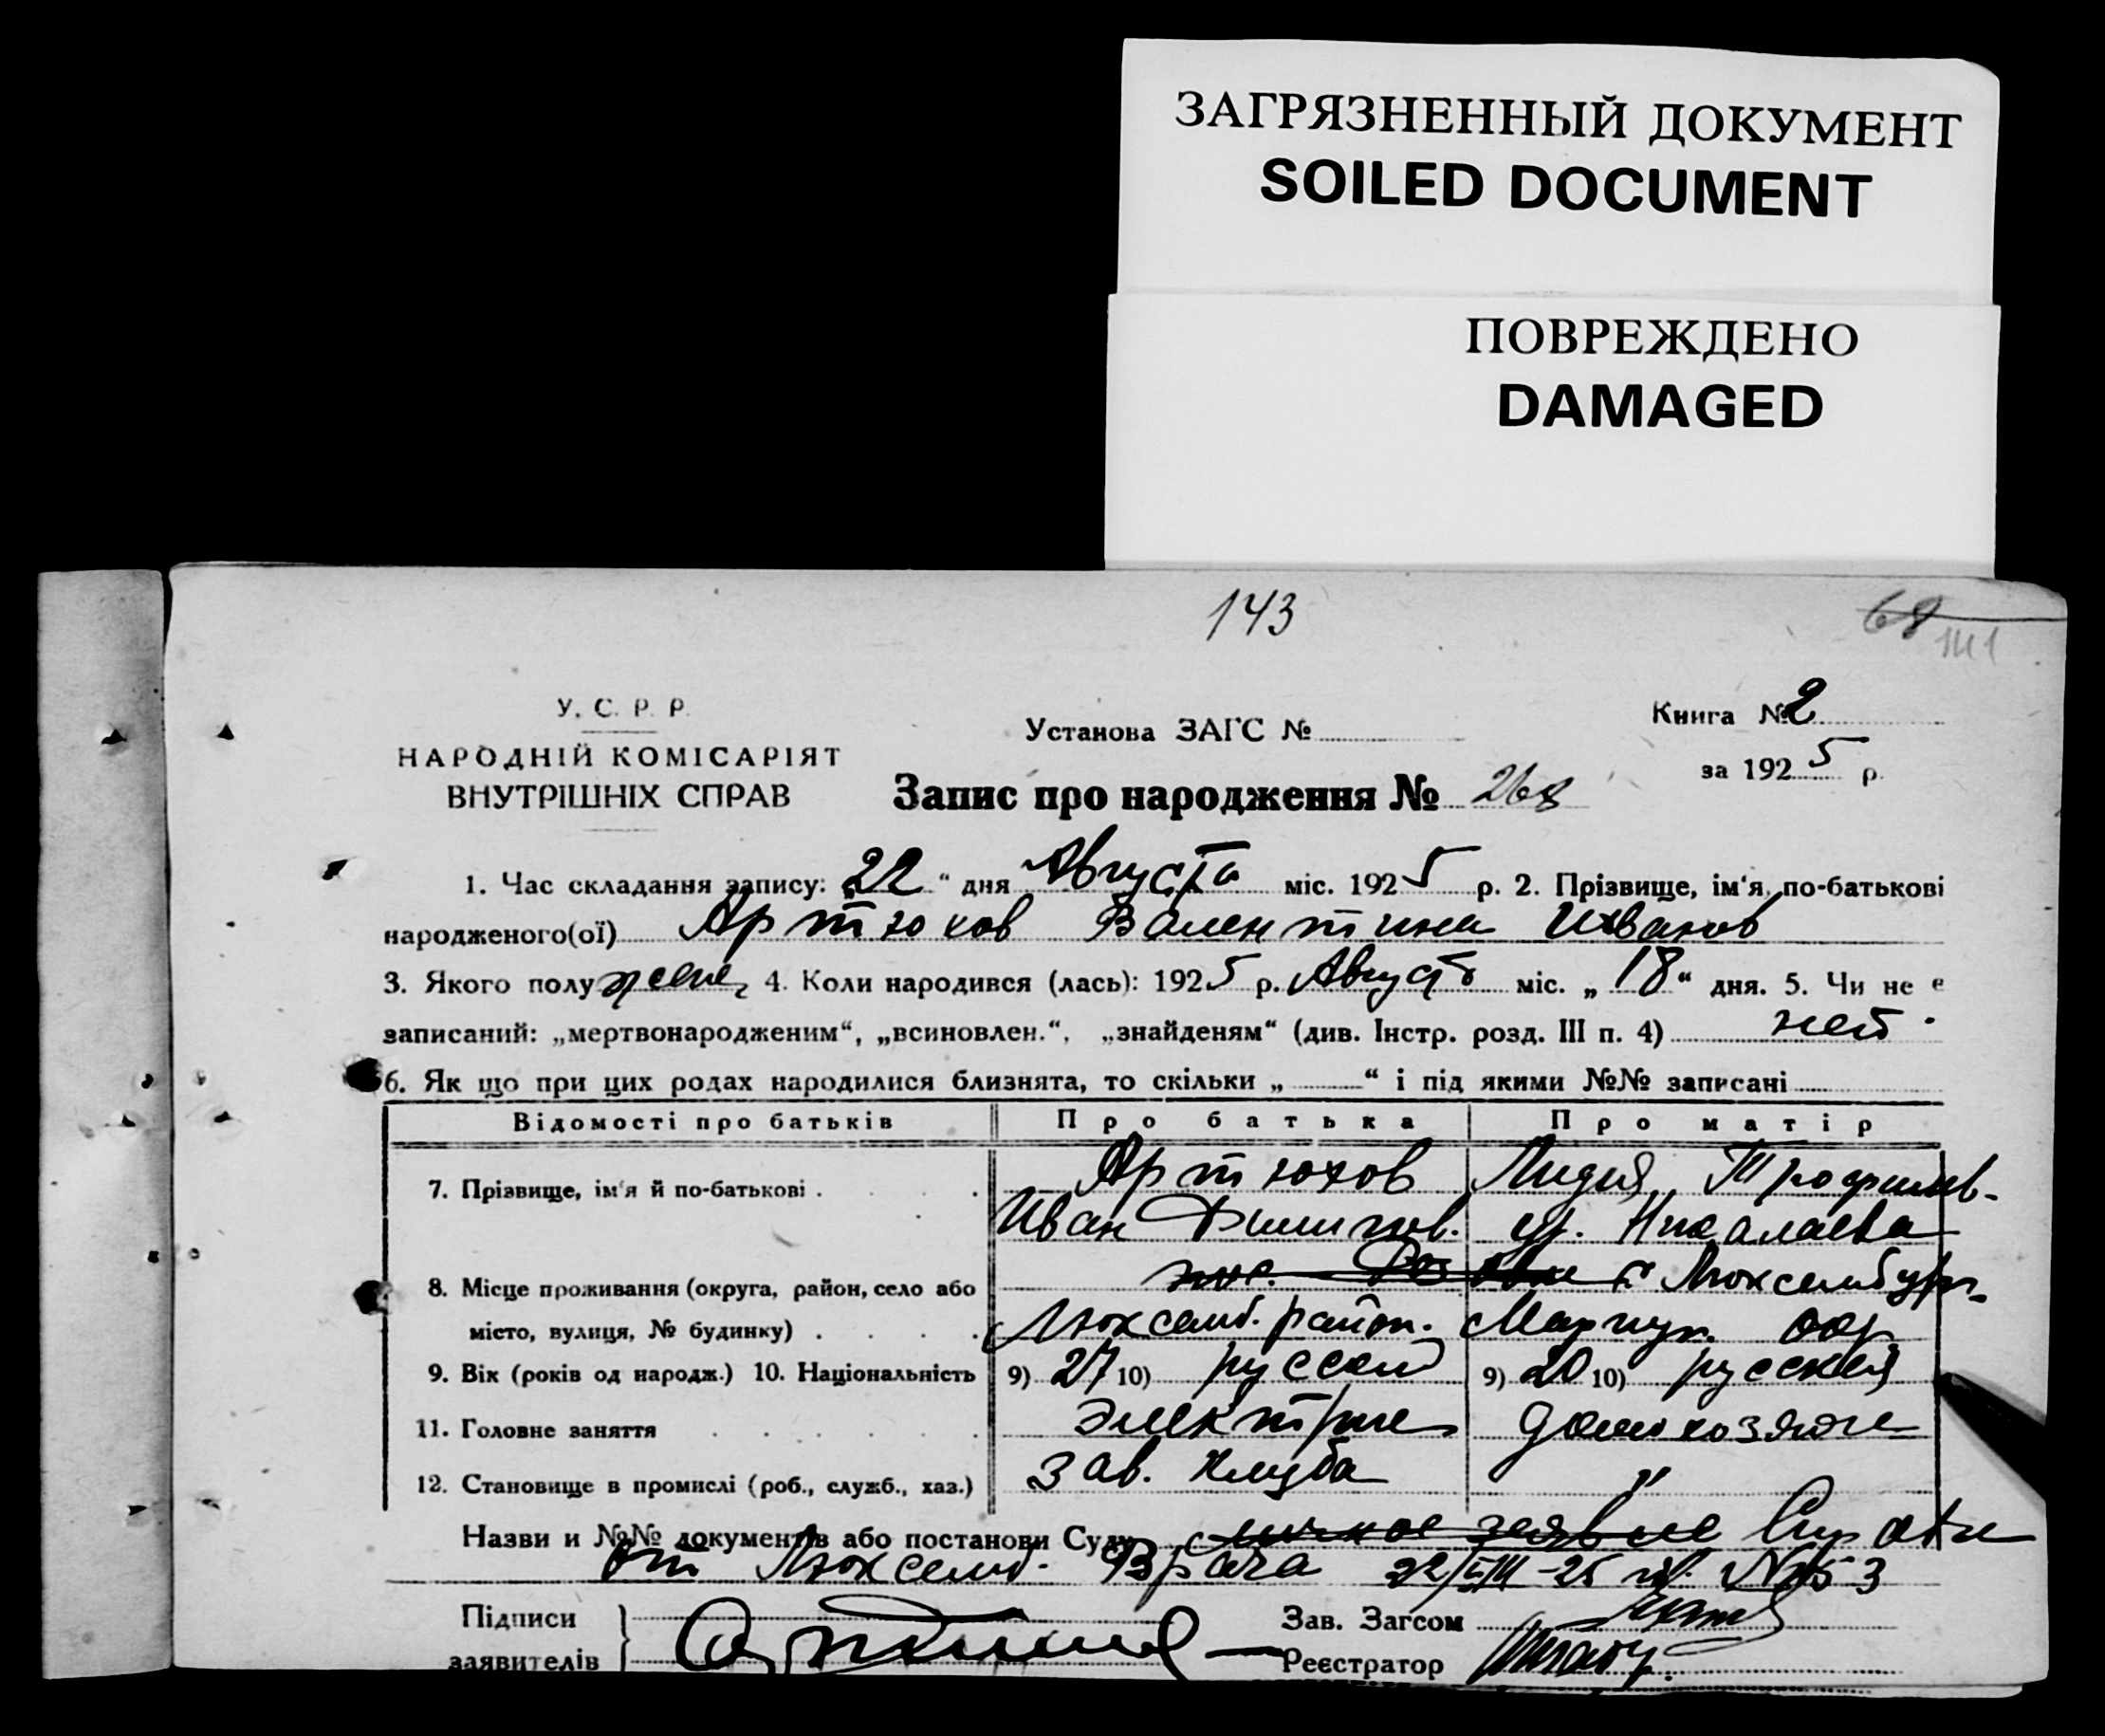 ЗАГРЯЗНЕННЫЙ ДОКУМЕНТ
SOILED DOCUMENT
ПОВРЕЖДЕНО
DAMAGED
143
68
141
У. С. Р. Р.
НАРОДНІЙ КОМІСАРІЯТ
ВНУТРІШНІХ СПРАВ
Установа ЗАГС №
Книга № 2
за 1925 р.
Запис про народження № 268
1. Час складання запису: „22“ дня Августа міс. 1925 р. 2. Прізвище, ім‘я, по-батькові
народженого(ої) Артюхов Валентина Иванов
3. Якого полу жен, 4. Коли народився (лась): 1925 р. Август міс. „18“ дня. 5. Чи не є
записаний: „мертвонародженим“, „всиновлен.“, „знайденям“ (див. Інстр. розд. III п. 4) нет.
6. Як що при цих родах народилися близнята, то скільки „ “ і під якими №№ записані
Відомості про батьків Про батька Про матір
7. Прізвище, ім‘я й по-батькові . Артюхов Лидия Трофимов-
Иван Николаева
8. Місце проживання (округа, район, село або Люксембург
місто, вулиця, № будинку) . Люксемб. район. Мариуп. окр
9. Вік (років од народж.) 10. Національність 9) 27 10) русский 9) 20 10) русская
11. Головне заняття
12. Становище в промислі (роб., служб., хаз.) Зав. Клуба "
Назви и №№ документів або постанови Суду личное
от Люксемб. Врача 22/VIII-25 №
Підписи
заявителів
Зав. Загсом
Реєстратор